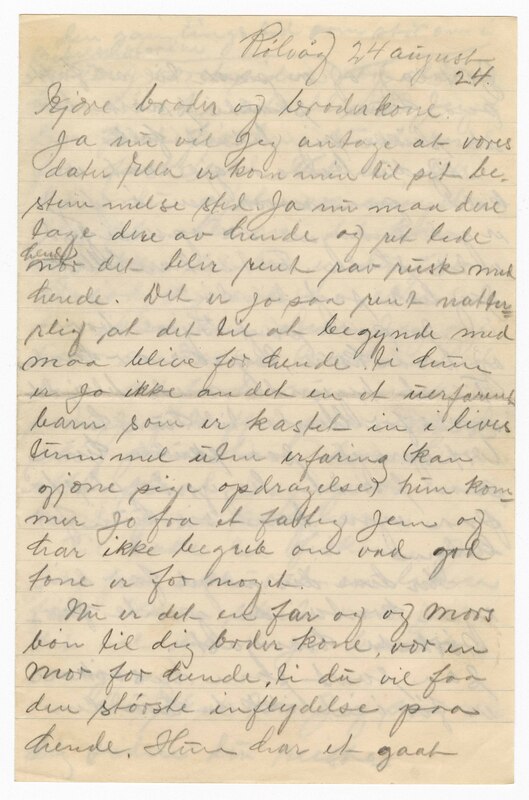 Rölvåg 24 august
24.
Kjære broder og broderkone.
Ja nu vil jeg antage at vores
dater Ella er kom min til sit be-
stem melse sted. Ja nu maa dere
tage dere av hende og ret lede
hende
nor det blir rent rav rusk med
hende. Det er jo saa rent natter-
rlig at det til at begynde med
maa blive for hende, ti hun
er jo ikke andet en et uerfarent
barn som er kastet in i livets
tummel uten erfaring (kan
gjøne pige opdragelse) hun kom-
mer jo fra et fattig jem og
har ikke begreb om vad god
tone er for noget.
Nu er det en far og og mors
bøn til dig broder kone, vær en
mor for hende, ti du vil faa
den største inflydelse paa
hende. Hun har et gaat